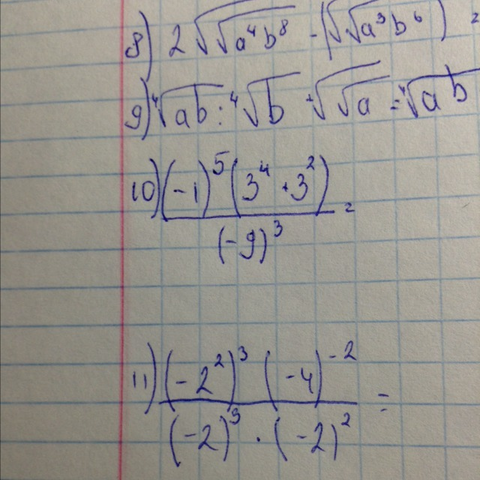 8) 2√√a⁴b⁸ - (√√a³b⁶) =
9) ⁴√ab : ⁴√b + √√a = ⁴√ab
10) (-1)⁵(3⁴ · 3²) / (-9)³ =
11) (-2²)³ (-4)⁻² / (-2)³ · (-2)² =